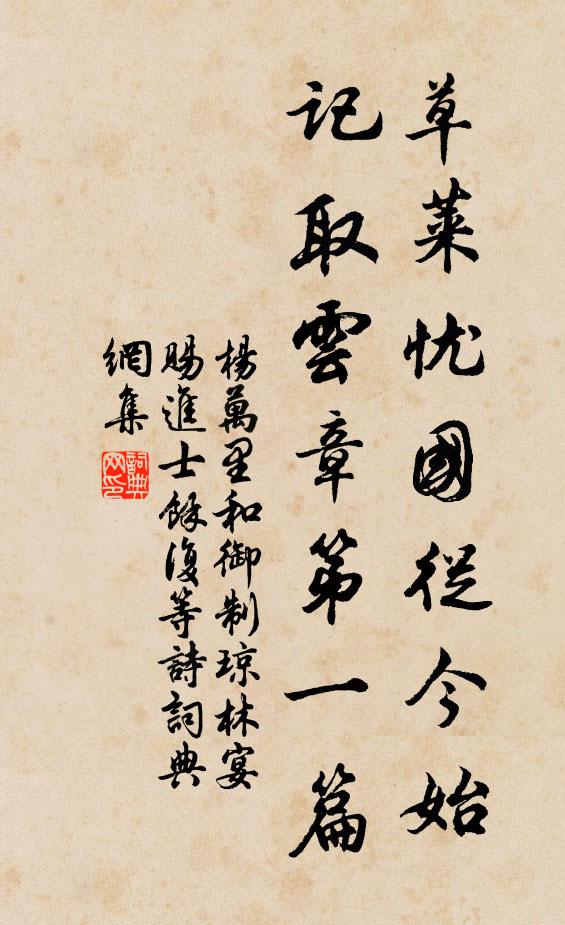 草萊忧國從今始
記取雲章第一篇
楊萬里和御制琼林宴
賜進士餘復等詩詞典
網集
詞典网印